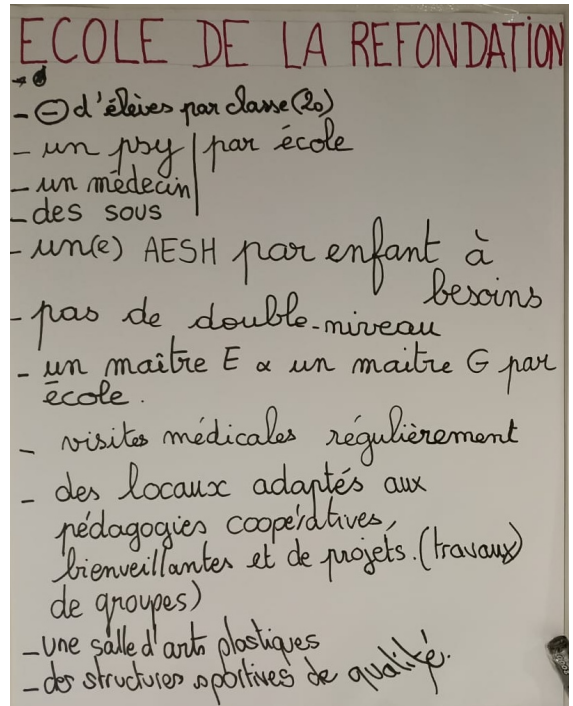 ECOLE DE LA REFONDATION
- ⊖ d'élèves par classe (20)
- un psy | par école
- un médecin |
- des sous
- un(e) AESH par enfant à
besoins
- pas de double-niveau
- un maître E & un maitre G par
école.
- visites médicales régulièrement
- des locaux adaptés aux
pédagogies coopératives,
bienveillantes et de projets. (travaux
de groupes)
- une salle d'arts plastiques
- des structures sportives de qualité.